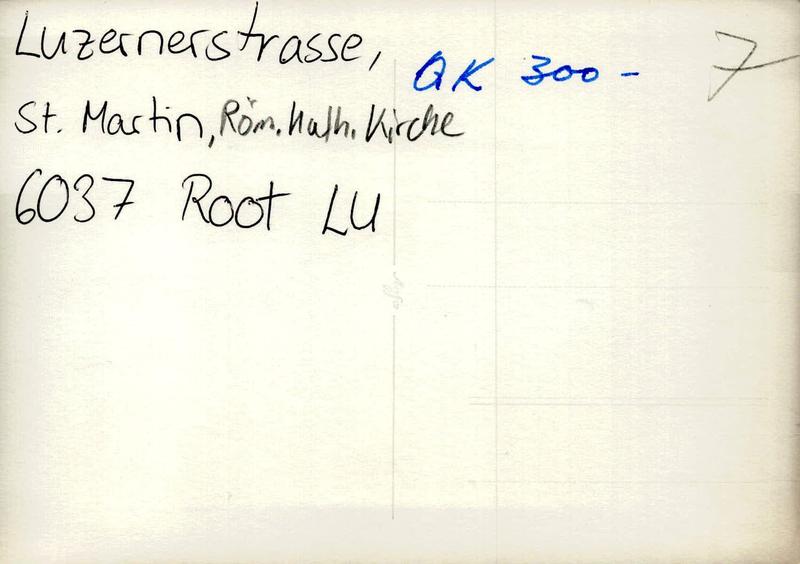 Luzernerstrasse,
QK 300 -
7
St. Martin, Röm. Kath. Kirche
6037 Root LU